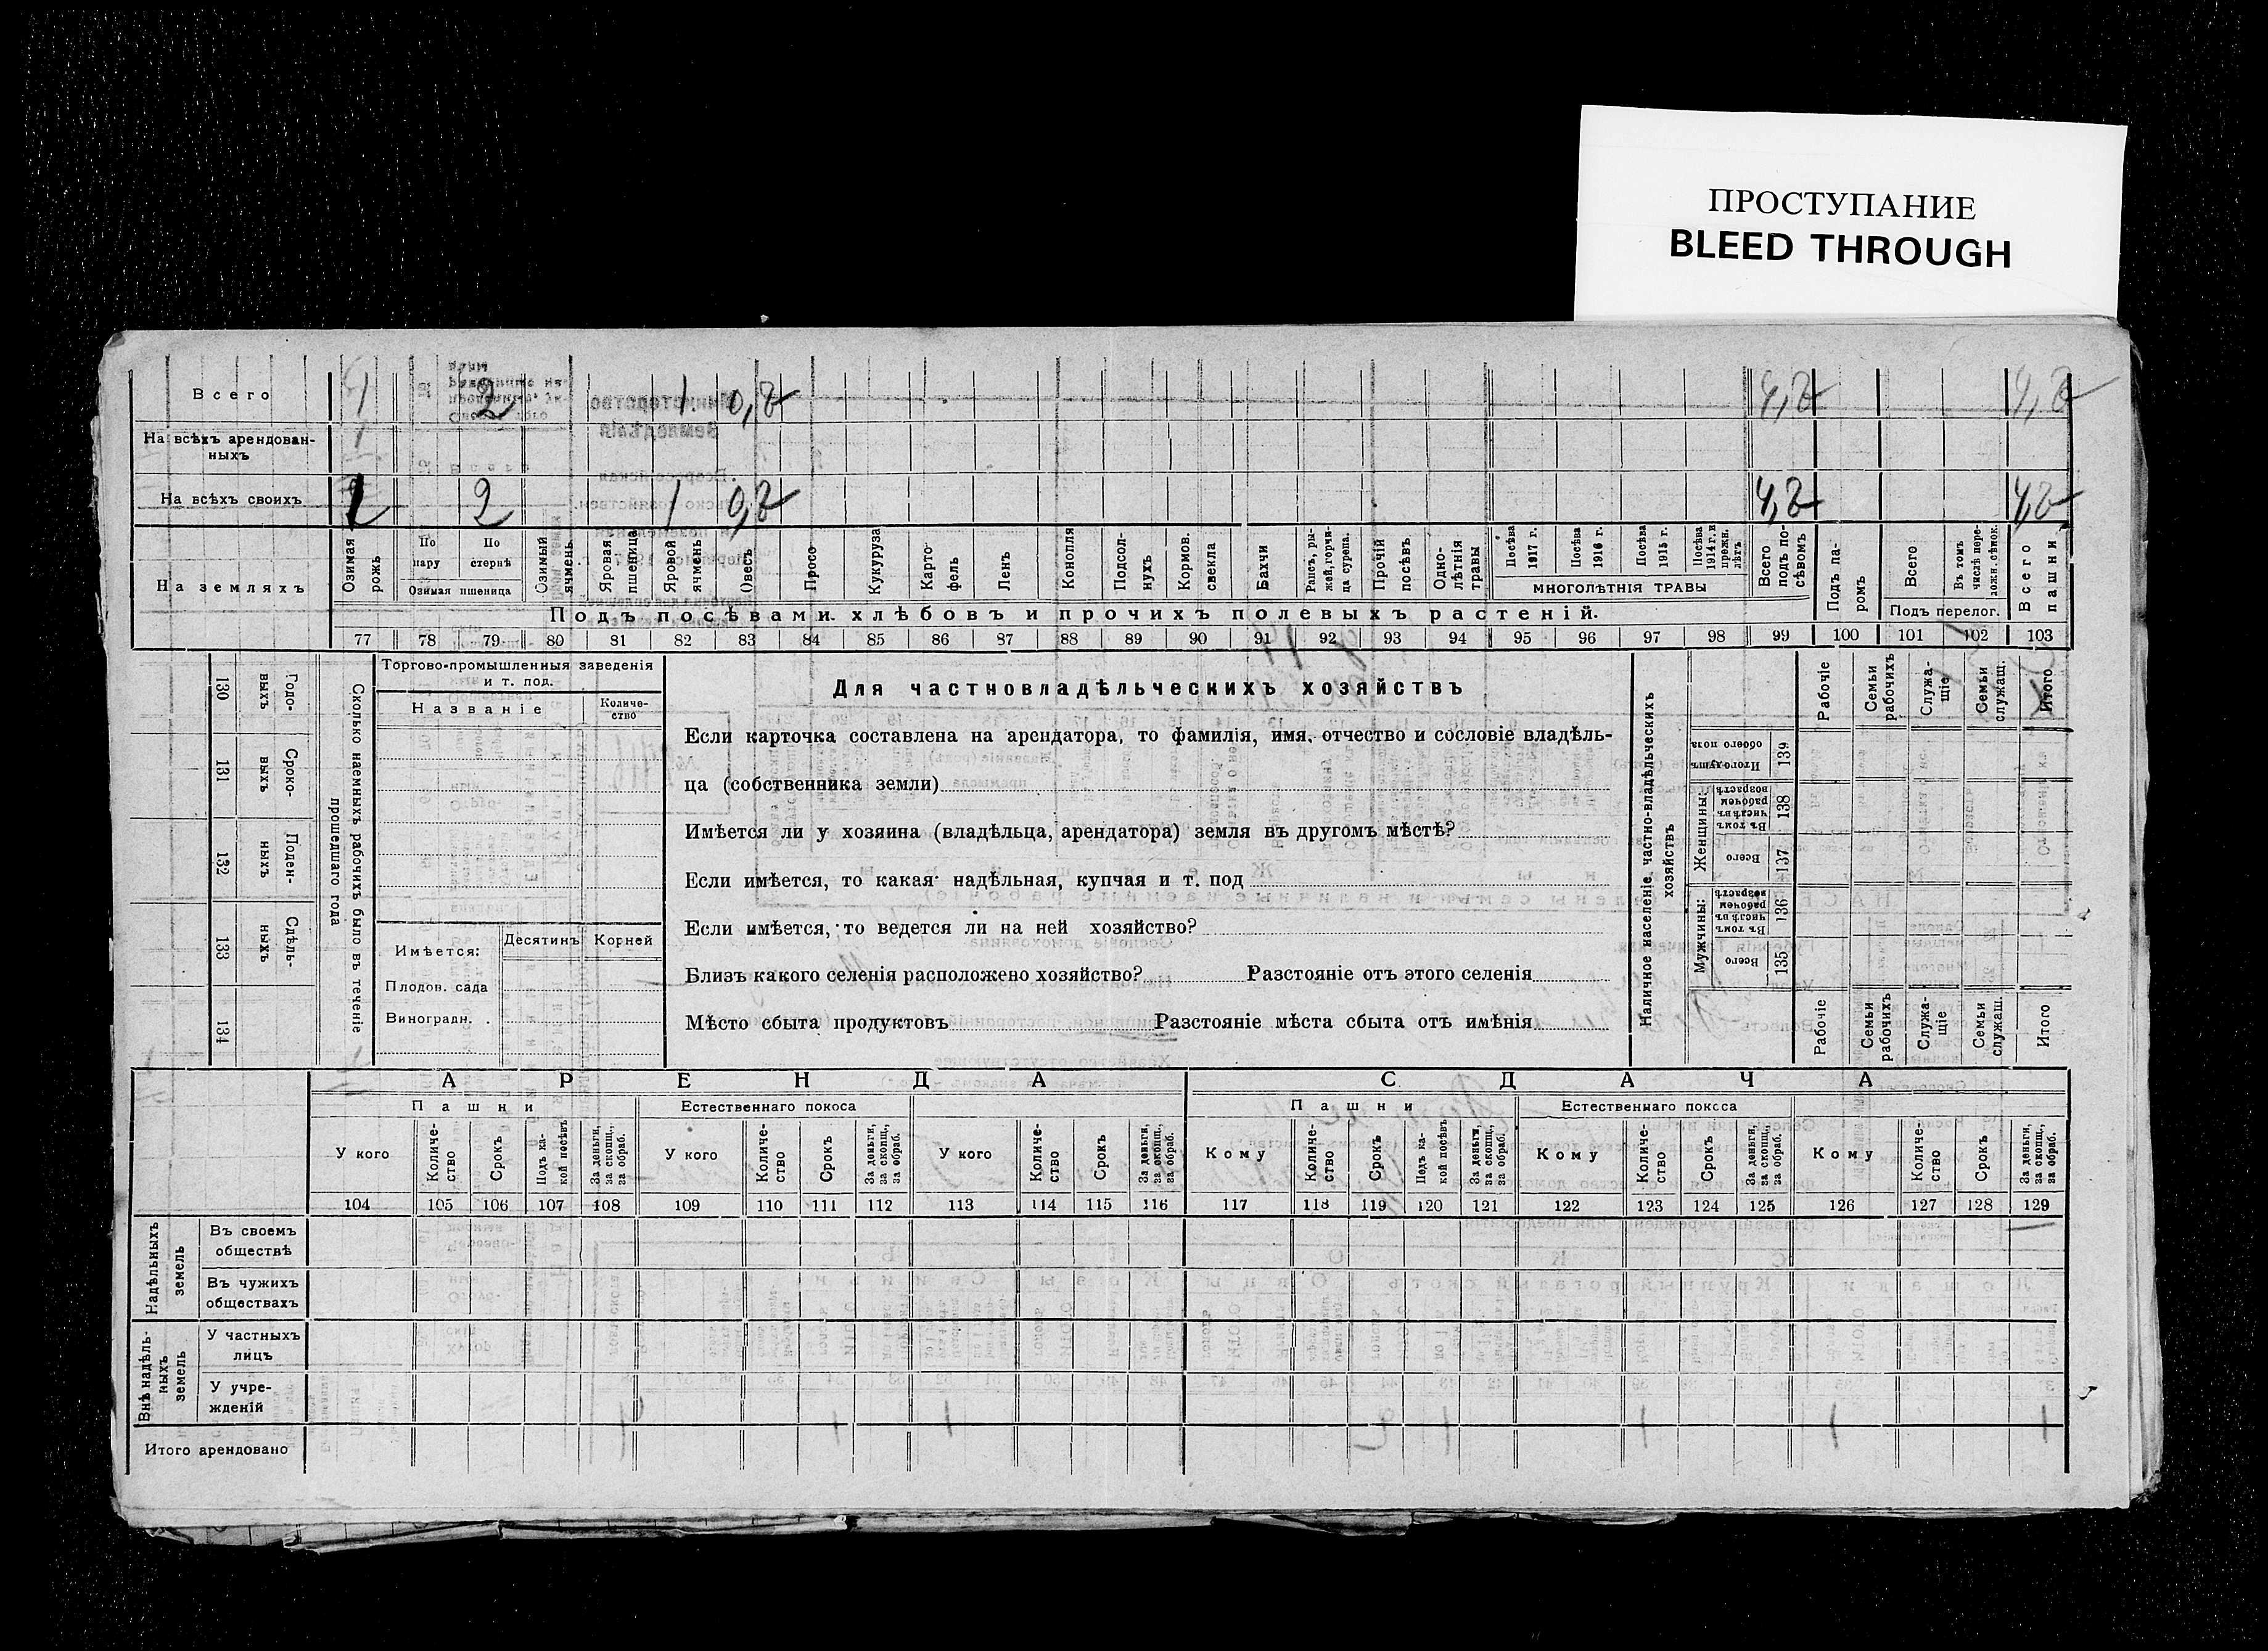 ПРОСТУПАНИЕ
BLEED THROUGH
Всего 2 1 0,8 4,8 4,8
На всѣхъ арендован-
ныхъ
На всѣхъ своихъ 1 2 1 0,8 4,8 4,8
На земляхъ
Озимая рожь
По пару
По стернѣ
Озимая пшеница
Озимый ячмень
Яровая пшеница
Яровой ячмень
Овесъ
Просо
Кукуруза
Карто-
фель
Ленъ
Конопля
Подсол-
нухъ
Кормов.
свекла
Бахчи
Рапсъ, ры-
жей, горчи-
ца сурепа.
Прочій
посѣвъ
Одно-
лѣтнія
травы
Посѣва 1917 г.
Посѣва 1916 г.
Посѣва 1915 г.
Посѣва 1914 г. и прежн. лѣтъ
МНОГОЛѢТНІЯ ТРАВЫ
Всего подъ по-
сѣвомъ
Подъ па-
ромъ
Всего
Въ томъ числѣ пере-
ложн. сѣнок.
Подъ перелог.
Всего пашни
Подъ посѣвами хлѣбовъ и прочихъ полевыхъ растеній.
77 78 79 80 81 82 83 84 85 86 87 88 89 90 91 92 93 94 95 96 97 98 99 100 101 102 103
130 Годо-
выхъ
131 Сроко-
выхъ
132 Поден-
ныхъ
133 Сдѣль-
ныхъ
134
Сколько наемныхъ рабочихъ было въ теченіе
прошедшаго года
Торгово-промышленныя заведенія
и т. под.
Названіе
Количе-
ство
Имѣется:
Десятинъ
Корней
Плодов. сада
Виноградн.
Для частновладѣльческихъ хозяйствъ
Если карточка составлена на арендатора, то фамилія, имя, отчество и сословіе владѣль-
ца (собственника земли)
Имѣется ли у хозяина (владѣльца, арендатора) земля въ другомъ мѣстѣ?
Если имѣется, то какая надѣльная, купчая и т. под
Если имѣется, то ведется ли на ней хозяйство?
Близъ какого селенія расположено хозяйство? Разстояніе отъ этого селенія
Мѣсто сбыта продуктовъ Разстояніе мѣста сбыта отъ имѣнія
Наличное населеніе частно-владѣльческихъ
хозяйствъ
Рабочіе
Семьи рабочихъ
Служа-
щіе
Семьи служащ.
Итого
Итого душъ обоего пола 139
Женщины:
Въ томъ числѣ въ рабочемъ возрастѣ 138
Всего 137
Мужчины:
Въ томъ числѣ въ рабочемъ возрастѣ 136
Всего 135
Рабочіе
Семьи рабочихъ
Служа-
щіе
Семьи служащ.
Итого
АРЕНДА СДАЧА
Пашни Естественнаго покоса Пашни Естественнаго покоса
У кого
Количе-
ство
Срокъ
Подъ ка-
кой посѣвъ
За деньги,
за скопщ.,
за обраб.
У кого
Количе-
ство
Срокъ
За деньги,
за скопщ.,
за обраб.
У кого
Количе-
ство
Срокъ
За деньги,
за скопщ.,
за обраб.
Кому
Количе-
ство
Срокъ
Подъ ка-
кой посѣвъ
За деньги,
за скопщ.,
за обраб.
Кому
Количе-
ство
Срокъ
За деньги,
за скопщ.,
за обраб.
Кому
Количе-
ство
Срокъ
За деньги,
за скопщ.,
за обраб.
104 105 106 107 108 109 110 111 112 113 114 115 116 117 118 119 120 121 122 123 124 125 126 127 128 129
Надѣльныхъ
земель
Въ своемъ
обществѣ
Въ чужихъ
обществахъ
Внѣ надѣль-
ныхъ
земель
У частныхъ
лицъ
У учре-
жденій
Итого арендовано